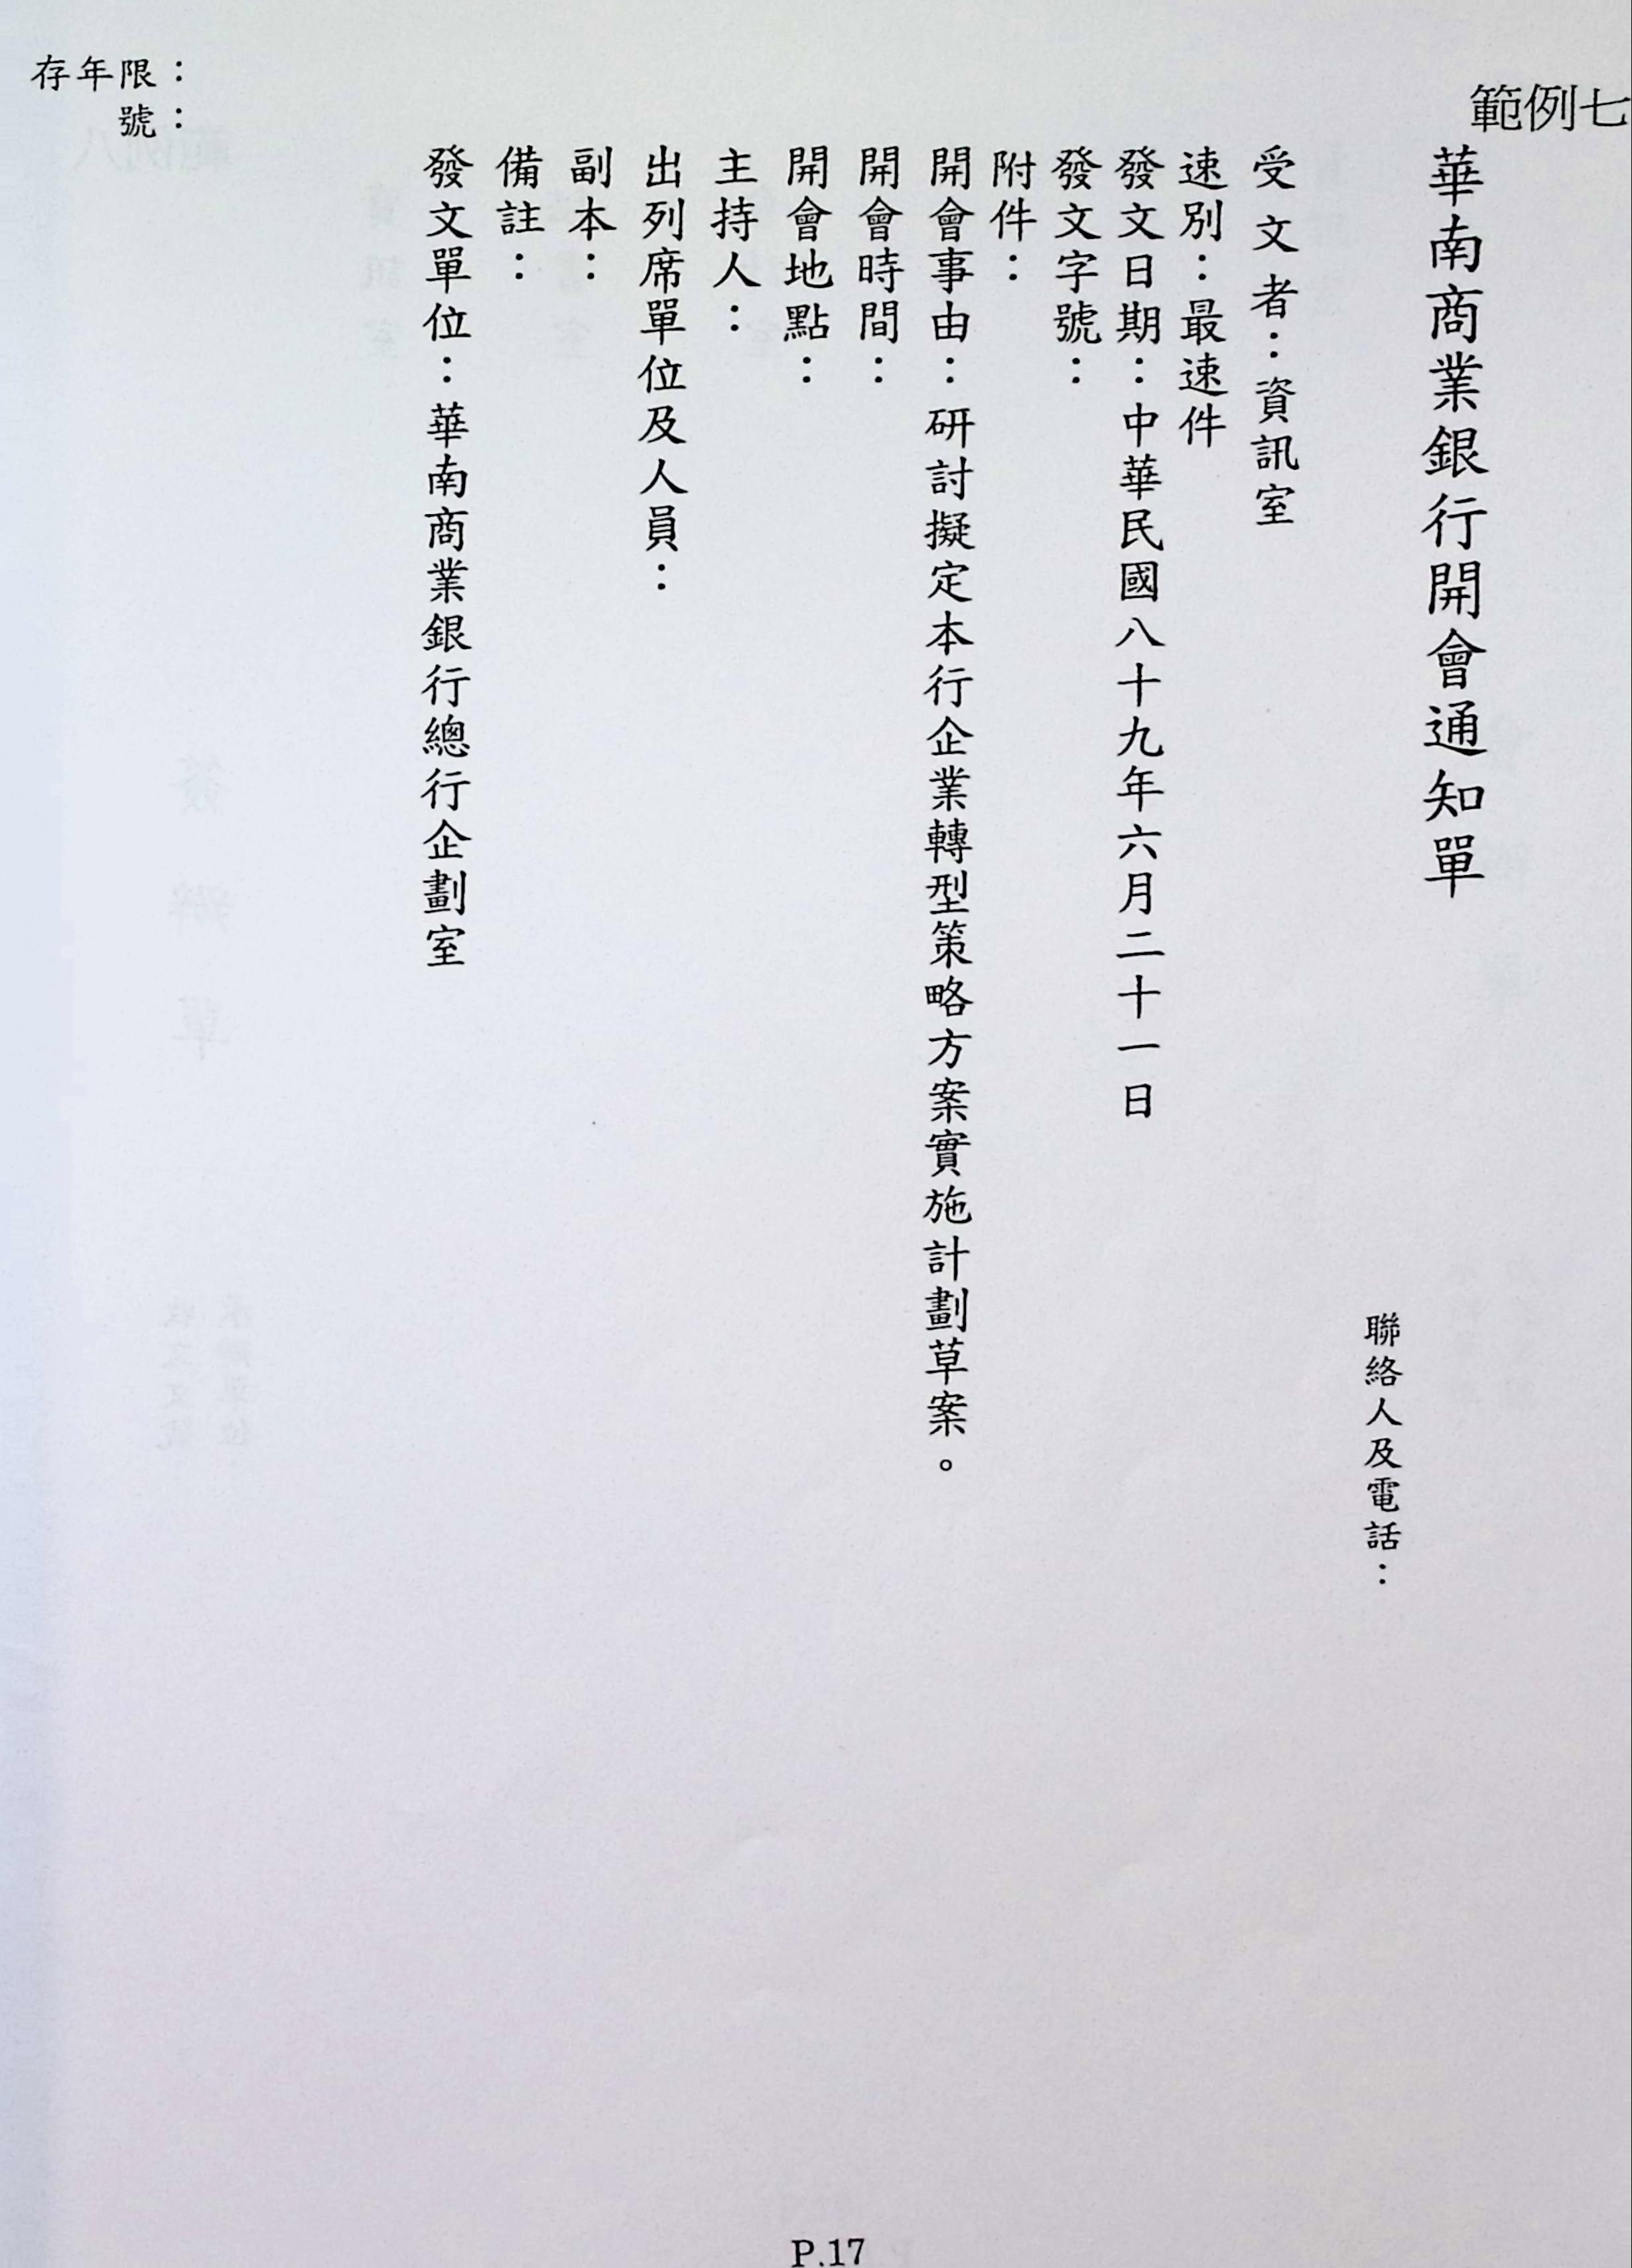 範例七
華南商業銀行開會通知單
聯絡人及電話：
受文者：資訊室
速別：最速件
發文日期：中華民國八十九年六月二十一日
發文字號：
附件：
開會事由：研討擬定本行企業轉型策略方案實施計劃草案。
開會時間：
開會地點：
主持人：
出列席單位及人員：
副本：
備註：
發文單位：華南商業銀行總行企劃室
存年限：
號：
P.17